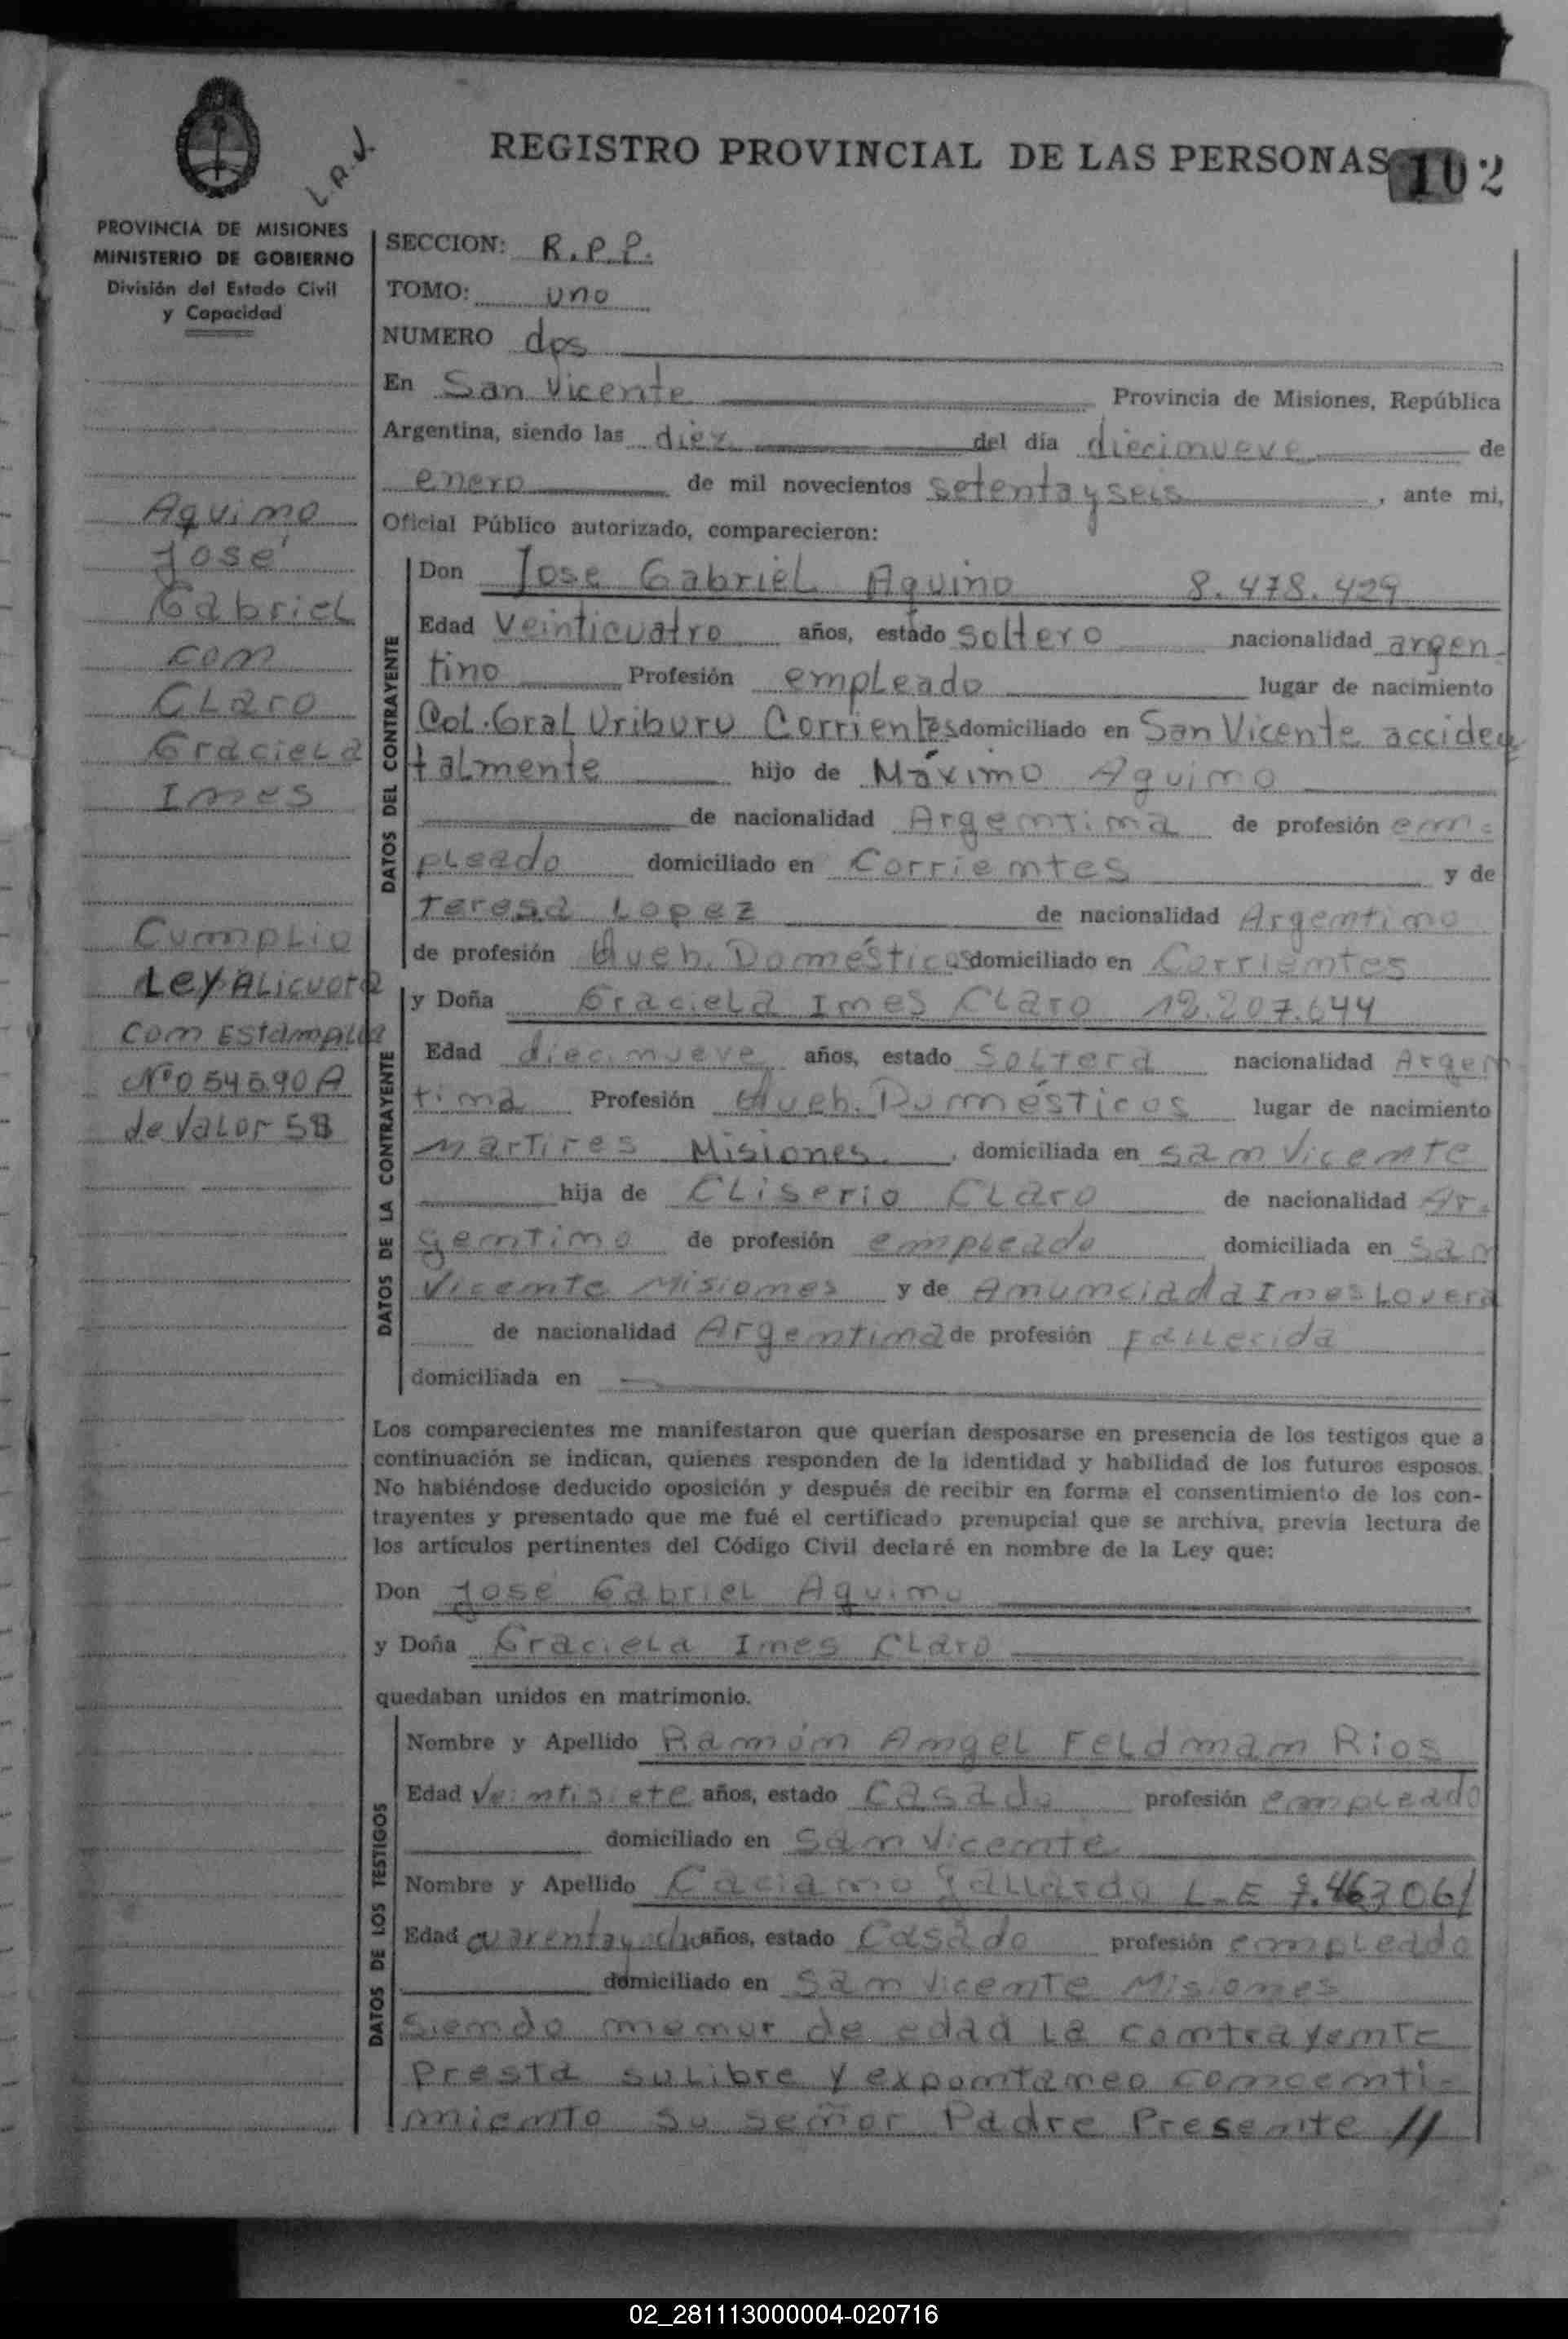 REGISTRO PROVINCIAL DE LAS PERSONAS 102
L.A.J.
PROVINCIA DE MISIONES
MINISTERIO DE GOBIERNO
División del Estado Civil
y Capacidad
SECCION: R.P.P.
TOMO: uno
NUMERO dos
En San Vicente Provincia de Misiones, República
Argentina, siendo las diez del día diecinueve de
enero de mil novecientos setenta y seis, ante mi,
Oficial Público autorizado, comparecieron:
Aquino
José
Gabriel
con
Claro
Graciela
Ines
Cumplio
Ley Alicuota
con Estampilla
de Valor
DATOS DEL CONTRAYENTE
Don Jose Gabriel Aquino 8.478.429
Edad Veinticuatro años, estado soltero nacionalidad argen-
tino Profesión empleado lugar de nacimiento
Col. Gral Uriburu Corrientes domiciliado en San Vicente acciden
talmente hijo de Máximo Aquino
de nacionalidad Argentina de profesión em-
pleado domiciliado en Corrientes y de
Teresa Lopez de nacionalidad Argentino
de profesión Queh. Domésticos domiciliado en Corrientes
DATOS DE LA CONTRAYENTE
y Doña Graciela Ines Claro 12.207.644
Edad diecinueve años, estado Soltera nacionalidad Argen
tina Profesión Queh. Domésticos lugar de nacimiento
Martires Misiones, domiciliada en San Vicente
hija de Cliserio Claro de nacionalidad Ar-
gentino de profesión empleado domiciliada en San
Vicente Misiones y de Anunciada Ines Lovera
de nacionalidad Argentina de profesión Fallecida
domiciliada en
Los comparecientes me manifestaron que querían desposarse en presencia de los testigos que a
continuación se indican, quienes responden de la identidad y habilidad de los futuros esposos.
No habiéndose deducido oposición y después de recibir en forma el consentimiento de los con-
trayentes y presentado que me fué el certificado prenupcial que se archiva, previa lectura de
los artículos pertinentes del Código Civil declaré en nombre de la Ley que:
Don José Gabriel Aquino
y Doña Graciela Ines Claro
quedaban unidos en matrimonio.
DATOS DE LOS TESTIGOS
Nombre y Apellido Ramón Angel Feldman Rios
Edad Veintisiete años, estado Casado profesión empleado
domiciliado en San Vicente
Nombre y Apellido Caciano Gallardo L-E 7.463061
Edad cuarenta y ocho años, estado Casado profesión empleado
domiciliado en San Vicente Misiones
Siendo menor de edad la contrayente
Presta su Libre y expontaneo concenti-
miento su señor Padre Presente //
02_281113000004-020716